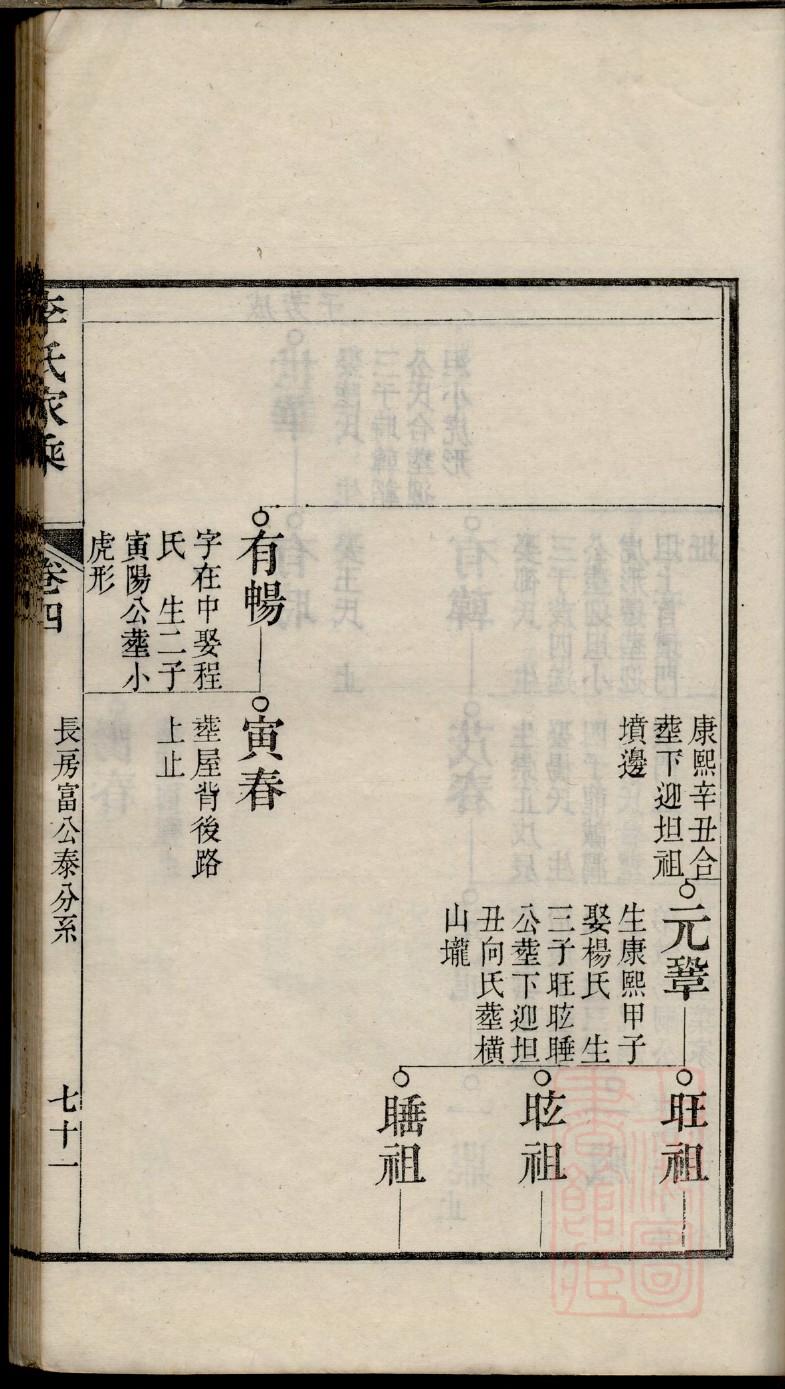 康熙辛丑合
塟下迎坦祖
墳邊
元鞏
生康熙甲子
娶楊氏　生
三子旺昡睡
公塟下迎坦
丑向氏塟橫
山壠
旺祖
昡祖
睡祖
有暢
字在中娶程
氏　生二子
寅陽公塟小
虎形
寅春
塟屋背後路
上止
李氏家乘
卷四
長房富公泰分系
七十一